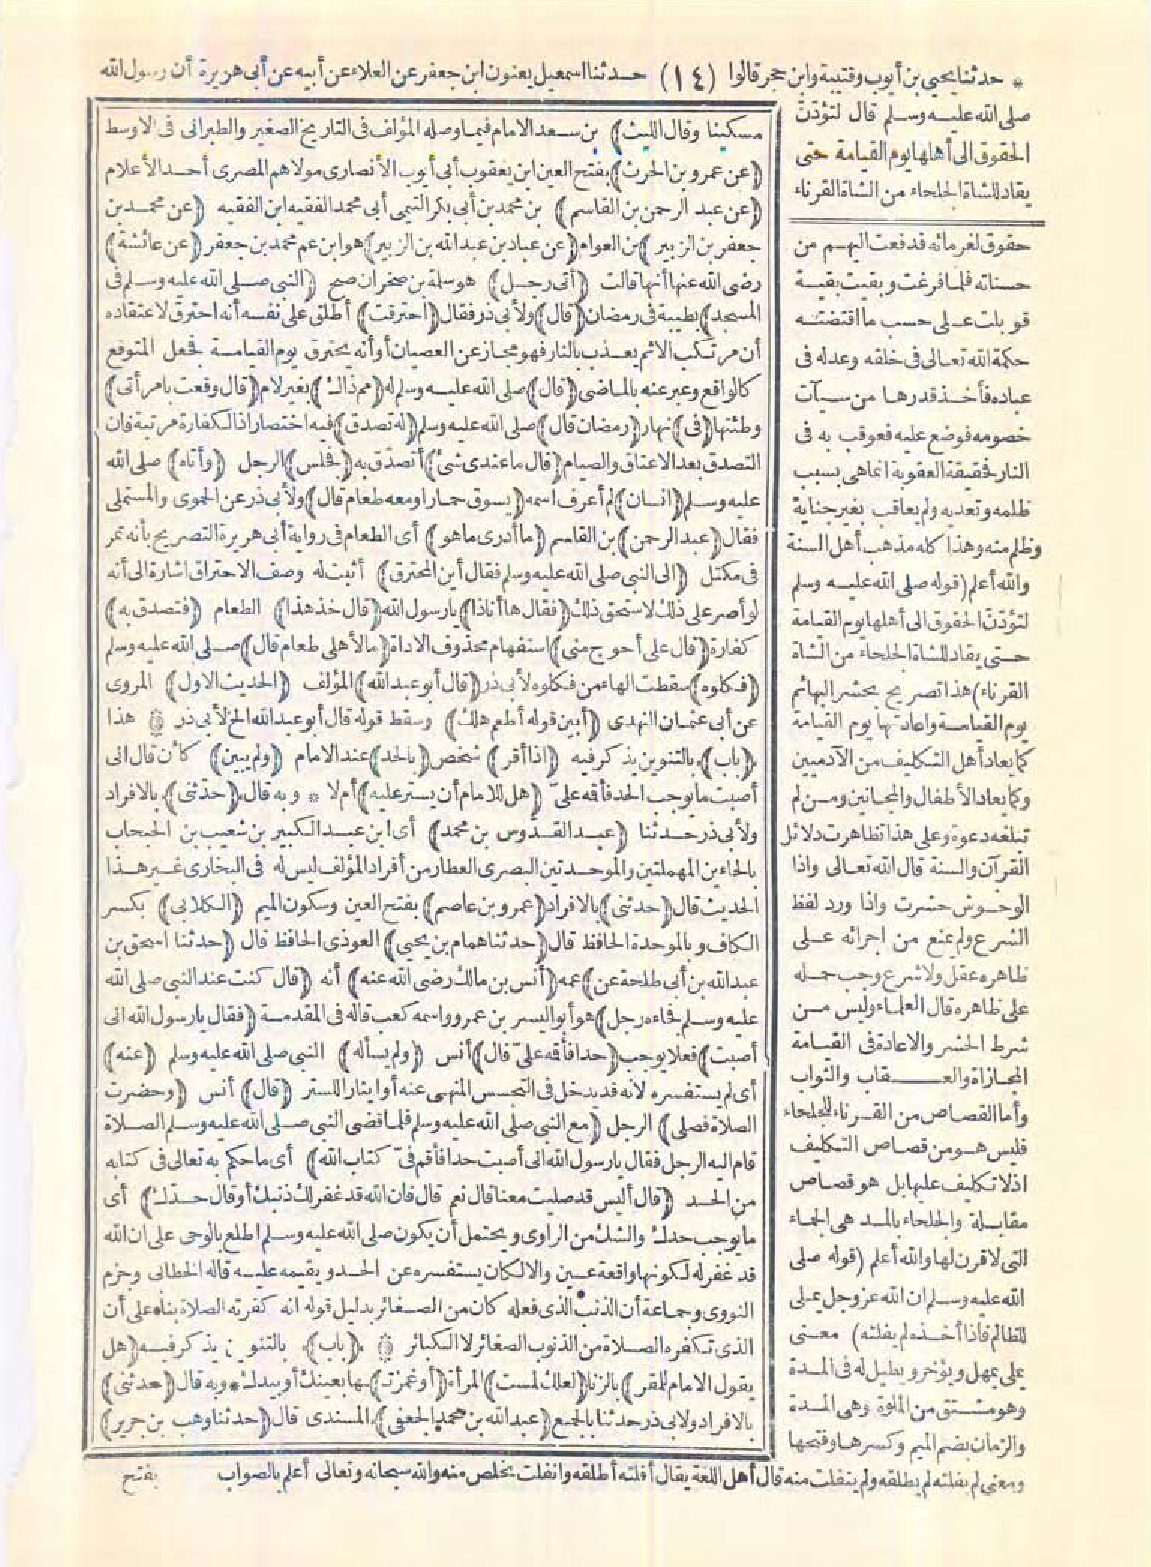 * حدثنا يحيى بن أيوب وقتيبة وابن حجر قالوا (١٤) حدثنا اسمعيل يعنون ابن جعفر عن العلاء عن أبيه عن أبي هريرة أن رسول الله
صلى الله عليه وسلم قال لتؤدن
الحقوق الى أهلها يوم القيامة حتى
يقاد للشاة الجلحاء من الشاة القرناء
حقوق لغرمائه فدفعت اليهم من
حسناته فلما فرغت وبقيت بقية
قوبلت على حسب ما اقتضته
حكمة الله تعالى فى خلقه وعدله فى
عباده فأخذ قدرها من سيآت
خصومه فوضع عليه فعوقب به فى
النار فحقيقة العقوبة انما هى بسبب
ظلمه وتعديه ولم يعاقب بغير جناية
وظلم منه وهذا كله مذهب أهل السنة
والله أعلم (قوله صلى الله عليه وسلم
لتؤدن الحقوق الى أهلها يوم القيامة
حتى يقاد للشاة الجلحاء من الشاة
القرناء) هذا تصريح بحشر البهائم
يوم القيامة واعادتها يوم القيامة
كما يعاد أهل التكليف من الآدميين
وكما يعاد الأطفال والمجانين ومن لم
تبلغه دعوة وعلى هذا تظاهرت دلائل
القرآن والسنة قال الله تعالى واذا
الوحوش حشرت واذا ورد لفظ
الشرع ولم يمنع من اجرائه على
ظاهره عقل ولا شرع وجب حمله
على ظاهره قال العلماء وليس من
شرط الحشر والاعادة فى القيامة
المجازاة والعقاب والثواب
وأما القصاص من القرناء للجلحاء
فليس هو من قصاص التكليف
اذ لا تكليف عليها بل هو قصاص
مقابلة والجلحاء بالمد هى الجماء
التى لا قرن لها والله أعلم (قوله صلى
الله عليه وسلم ان الله عز وجل يملى
للظالم فاذا أخذه لم يفلته) معنى
يملى يمهل ويؤخر ويطيل له فى المدة
وهو مشتق من الملوة وهى المدة
والزمان بضم الميم وكسرها وفتحها
مسكينا وقال الليث) بن سعد الامام فيما وصله المؤلف فى التاريخ الصغير والطبرانى فى الاوسط
(عن عمرو بن الحرث) بفتح العين ابن يعقوب أبى أيوب الأنصارى مولاهم المصرى أحد الأعلام
(عن عبد الرحمن بن القاسم) بن محمد بن أبى بكر التيمى أبى محمد الفقيه ابن الفقيه (عن محمد بن
جعفر بن الزبير) بن العوام (عن عباد بن عبد الله بن الزبير) هو ابن عم محمد بن جعفر (عن عائشة)
رضى الله عنها أنها قالت (أتى رجل) هو سلمة بن صخر ان صح (النبى صلى الله عليه وسلم فى
المسجد) بطيبة فى رمضان (قال) ولأبى ذر فقال (احترقت) أطلق على نفسه أنه احترق لاعتقاده
أن مرتكب الاثم يعذب بالنار فهو مجاز عن العصيان أو أنه يحترق يوم القيامة فجعل المتوقع
كالواقع وعبر عنه بالماضى (قال) صلى الله عليه وسلم له (مم ذاك) بغير لام (قال وقعت بامرأتى)
وطئتها (فى) نهار (رمضان قال) صلى الله عليه وسلم (له تصدق) فيه اختصار اذ الكفارة مرتبة فان
التصدق بعد الاعتاق والصيام (قال ما عندى شئ) أتصدق به (فجلس) الرجل (وأتاه) صلى الله
عليه وسلم (انسان) لم أعرف اسمه (يسوق حمارا ومعه طعام قال) ولأبى ذر عن الحموى والمستملى
فقال (عبد الرحمن) بن القاسم (ما أدرى ما هو) أى الطعام فى رواية أبى هريرة التصريح بأنه تمر
فى مكتل (الى النبى صلى الله عليه وسلم فقال أين المحترق) أثبت له وصف الاحتراق اشارة الى أنه
لو أصر على ذلك لاستحق ذلك (فقال ها أنا ذا) يا رسول الله (قال خذ هذا) الطعام (فتصدق به)
كفارة (قال على أحوج منى) استفهام محذوف الاداة (ما لأهلى طعام قال) صلى الله عليه وسلم
(فكلوه) سقطت الهاء من فكلوه لأبى ذر (قال أبو عبد الله) المؤلف (الحديث الاول) المروى
عن أبى عثمان النهدى (أبين قوله أطعم أهلك) وسقط قوله قال أبو عبد الله الخ لأبى ذر ۞ هذا
(باب) بالتنوين يذكر فيه (اذا أقر) شخص (بالحد) عند الامام (ولم يبين) كأن قال انى
أصبت ما يوجب الحد فأقمه على (هل للامام أن يستر عليه) أم لا * وبه قال (حدثنى) بالافراد
ولأبى ذر حدثنا (عبد القدوس بن محمد) أى ابن عبد الكبير بن شعيب بن الحبحاب
بالحاءين المهملتين والموحدتين البصرى العطار من أفراد المؤلف ليس له فى البخارى غير هذا
الحديث قال (حدثنى) بالافراد (عمرو بن عاصم) بفتح العين وسكون الميم (الكلابى) بكسر
الكاف وبالموحدة الحافظ قال (حدثنا همام بن يحيى) العوذى الحافظ قال (حدثنا اسحق بن
عبد الله بن أبى طلحة عن) عمه (أنس بن مالك رضى الله عنه) أنه (قال كنت عند النبى صلى الله
عليه وسلم فجاءه رجل) هو أبو اليسر بن عمرو واسمه كعب قاله فى المقدمة (فقال يا رسول الله انى
أصبت) فعلا يوجب (حدا فأقمه على قال) أنس (ولم يسأله) النبى صلى الله عليه وسلم (عنه)
أى لم يستفسره لانه قد يدخل فى التجسس المنهى عنه أو ايثار الستر (قال) أنس (وحضرت
الصلاة فصلى) الرجل (مع النبى صلى الله عليه وسلم فلما قضى النبى صلى الله عليه وسلم الصلاة
قام اليه الرجل فقال يا رسول الله انى أصبت حدا فأقم فىّ كتاب الله) أى ما حكم به تعالى فى كتابه
من الحد (قال أليس قد صليت معنا قال نعم قال فان الله قد غفر لك ذنبك أو قال حدك) أى
ما يوجب حدك والشك من الراوى ويحتمل أن يكون صلى الله عليه وسلم اطلع بالوحى على ان الله
قد غفر له لكونها واقعة عين والا لكان يستفسره عن الحد ويقيمه عليه قاله الخطابى وجزم
النووى وجماعة أن الذنب الذى فعله كان من الصغائر بدليل قوله انه كفرته الصلاة بناء على أن
الذى تكفره الصلاة من الذنوب الصغائر لا الكبائر ۞ (باب) بالتنوين يذكر فيه (هل
يقول الامام للمقر) بالزنا (لعلك لمست) المرأة (أو غمزت) ها بعينك أو بيدك * وبه قال (حدثنى)
بالافراد ولابى ذر حدثنا بالجمع (عبد الله بن محمد الجعفى) المسندى قال (حدثنا وهب بن جرير)
ومعنى لم يفلته لم يطلقه ولم ينفلت منه قال أهل اللغة يقال أفلته أطلقه وانفلت تخلص منه والله سبحانه وتعالى أعلم بالصواب بفتح